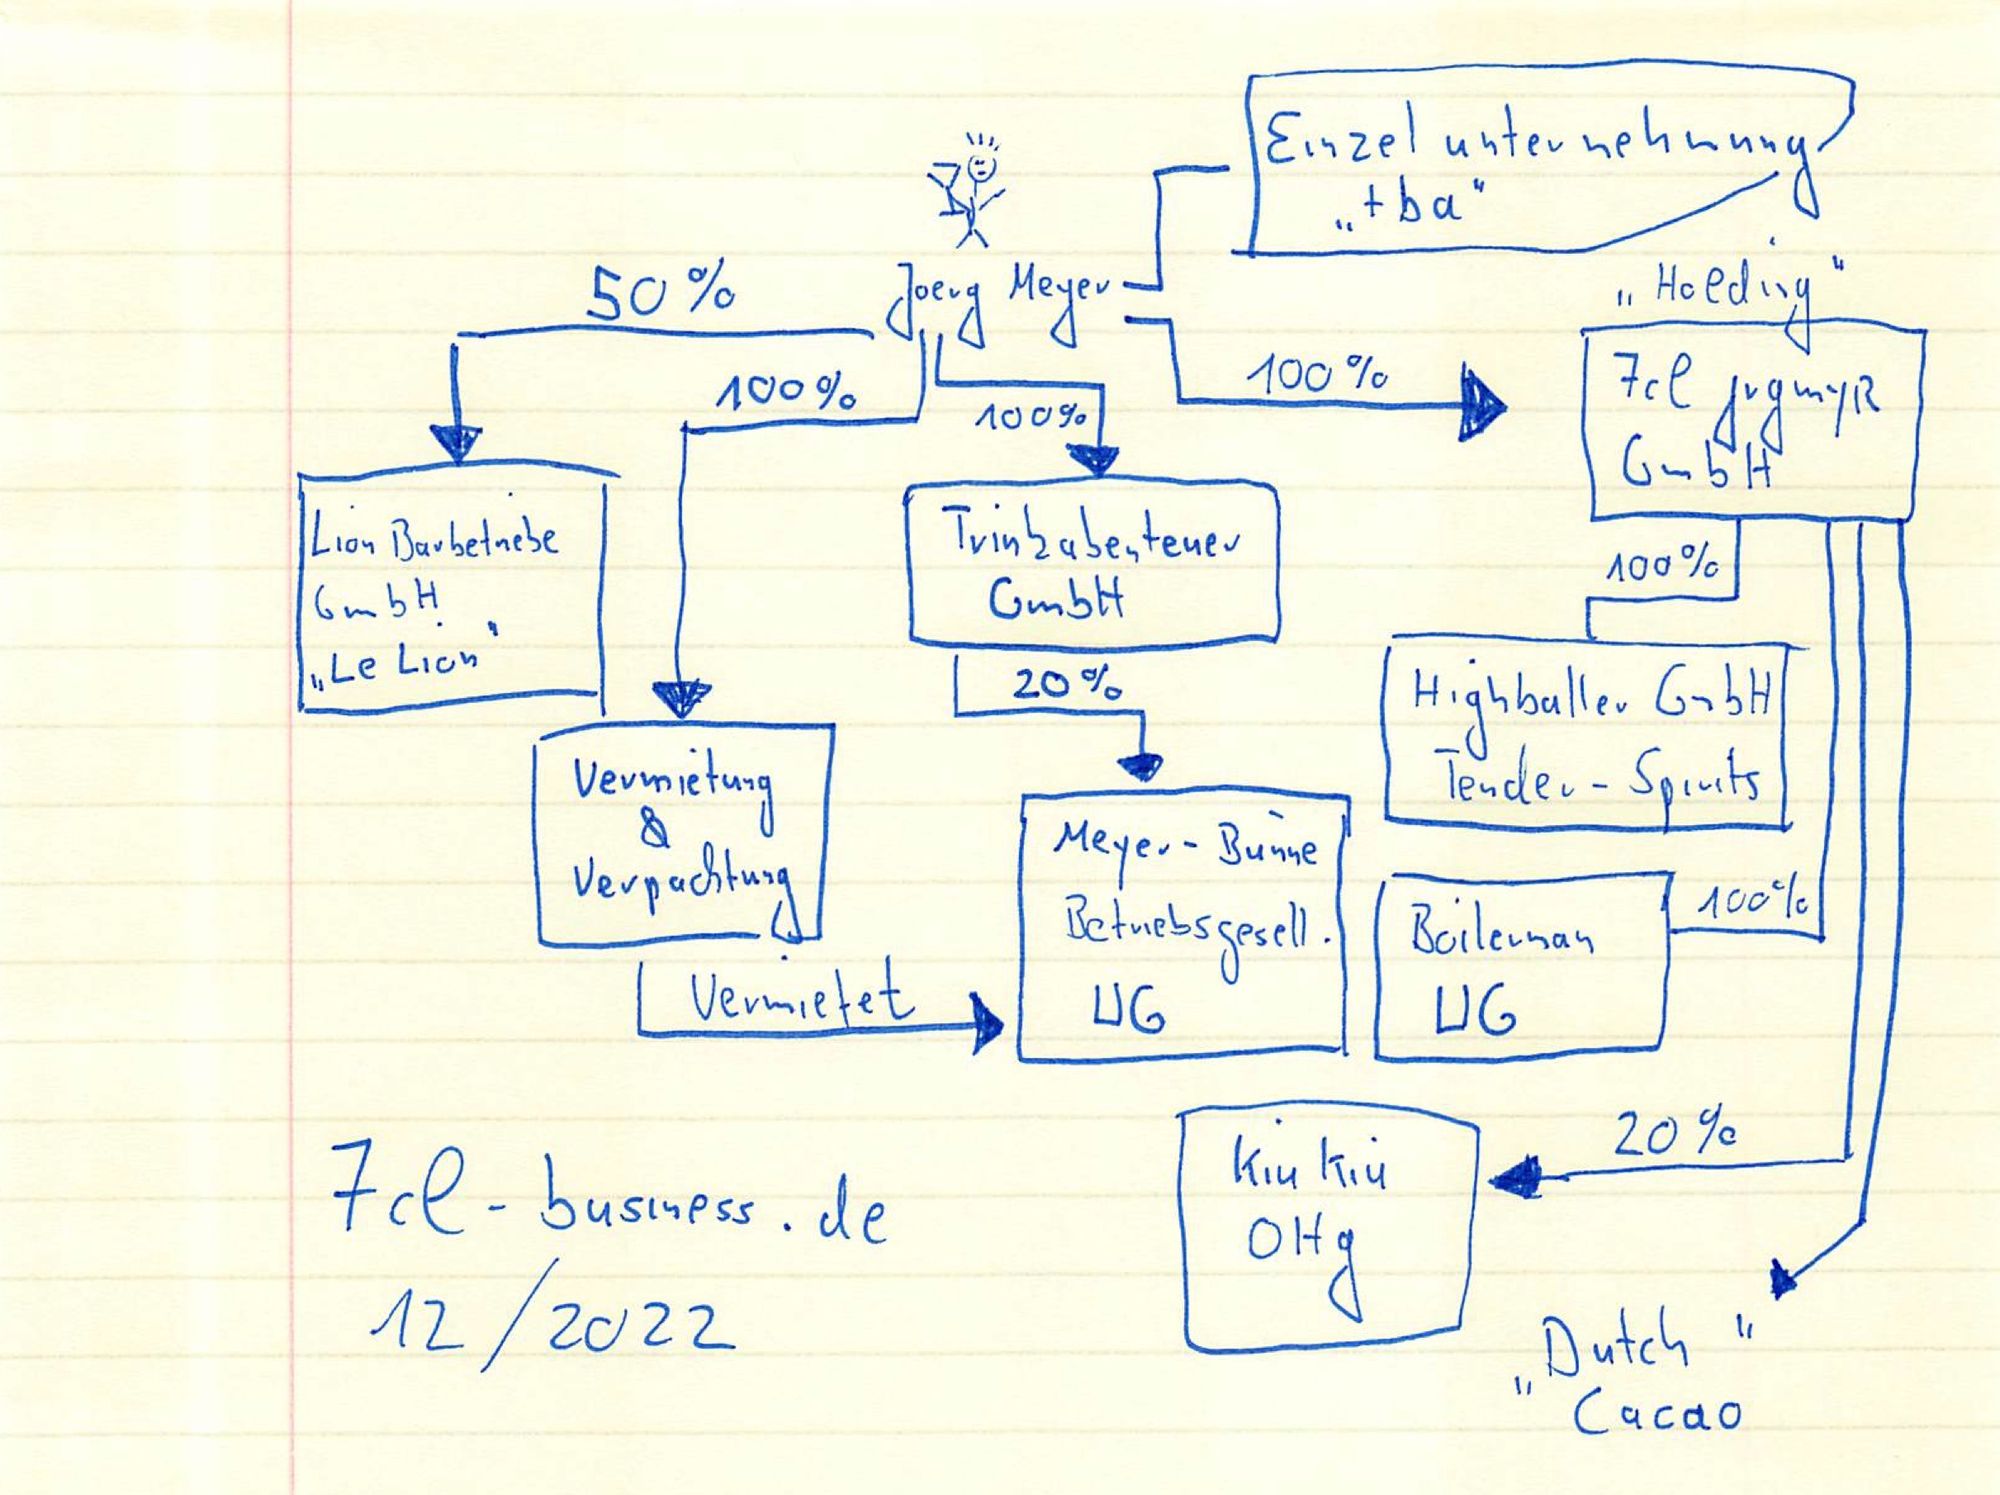 Einzelunternehmung
„tba"
Joerg Meyer
„Holding"
50%
100%
100%
100%
7cl jrgmyR
GmbH
Lion Barbetriebe
GmbH
„Le Lion"
Trinkabenteuer
GmbH
100%
20%
Highballer GmbH
Tender-Spirits
Vermietung
&
Verpachtung
Meyer-Bünne
Betriebsgesell.
UG
Boilerman
UG
100%
Vermietet
Kiu Kiu
OHg
20%
7cl-business.de
12/2022
„Dutch"
Cacao